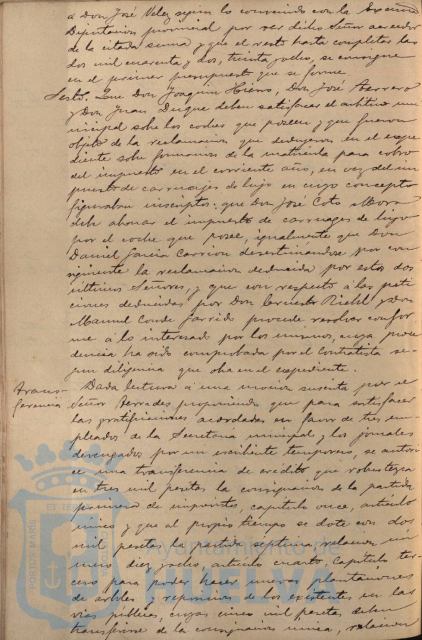 a Don José Velez según lo convenido con la Excma
Diputación provincial por ser dicho Señor acreedor
de la citada suma y que el resto hasta completar las
dos mil cuarenta y dos, treinta y ocho, se consigne
en el primer presupuesto que se forme.
Sesto. Que Don Joaquin Hierro, Don José Herrera
y Don Juan Duque deben satisfacer el arbitrio mu
nicipal sobre los coches que poseen y que fueron
objeto de la reclamación que dedujeron en el expe
diente sobre formación de la matrícula para cobro
del impuesto en el corriente año, en vez del im
puesto de carruajes de lujo en cuyo concepto
figuraban inscriptos: que Don José Coto Mora
debe abonar el impuesto de carruages de lujo
por el coche que posee, igualmente que Don
Daniel García Carrion desestimándose por con
siguiente la reclamación deducida por estos dos
últimos Señores, y que con respecto á las peti
ciones deducidas por Don Ernesto Riehl y Don
Manuel Conde Garrido procede resolver confor
me á lo interesado por los mismos, cuya proce
dencia ha sido comprobada por el Contratista se-
gun diligencia que obra en el expediente.
Trans-
ferencia
Dada lectura á una mocion suscrita por el
Señor proponiendo que para satisfacer
las gratificaciones acordadas en favor de tres em
pleados de la Secretaria municipal, y los jornales
devengados por un escribiente temporero, se autori
ce una transferencia de crédito que robustezca
en tres mil pesetas la consignacion de la partida
primera de imprevistos, capítulo once, artículo
único y que al propio tiempo se dote con dos
mil pesetas la partida septima relacion nú
mero diez y ocho artículo cuarto, Capitulo ter-
cero para poder hacer nuevas plantaciones
de arboles y reposicion de los existentes en las
vias públicas, cuyas cinco mil pesetas deben
transferirse de la consignacion única, relacion
Ayuntamiento de
HUELVA
PORTUS MARIS